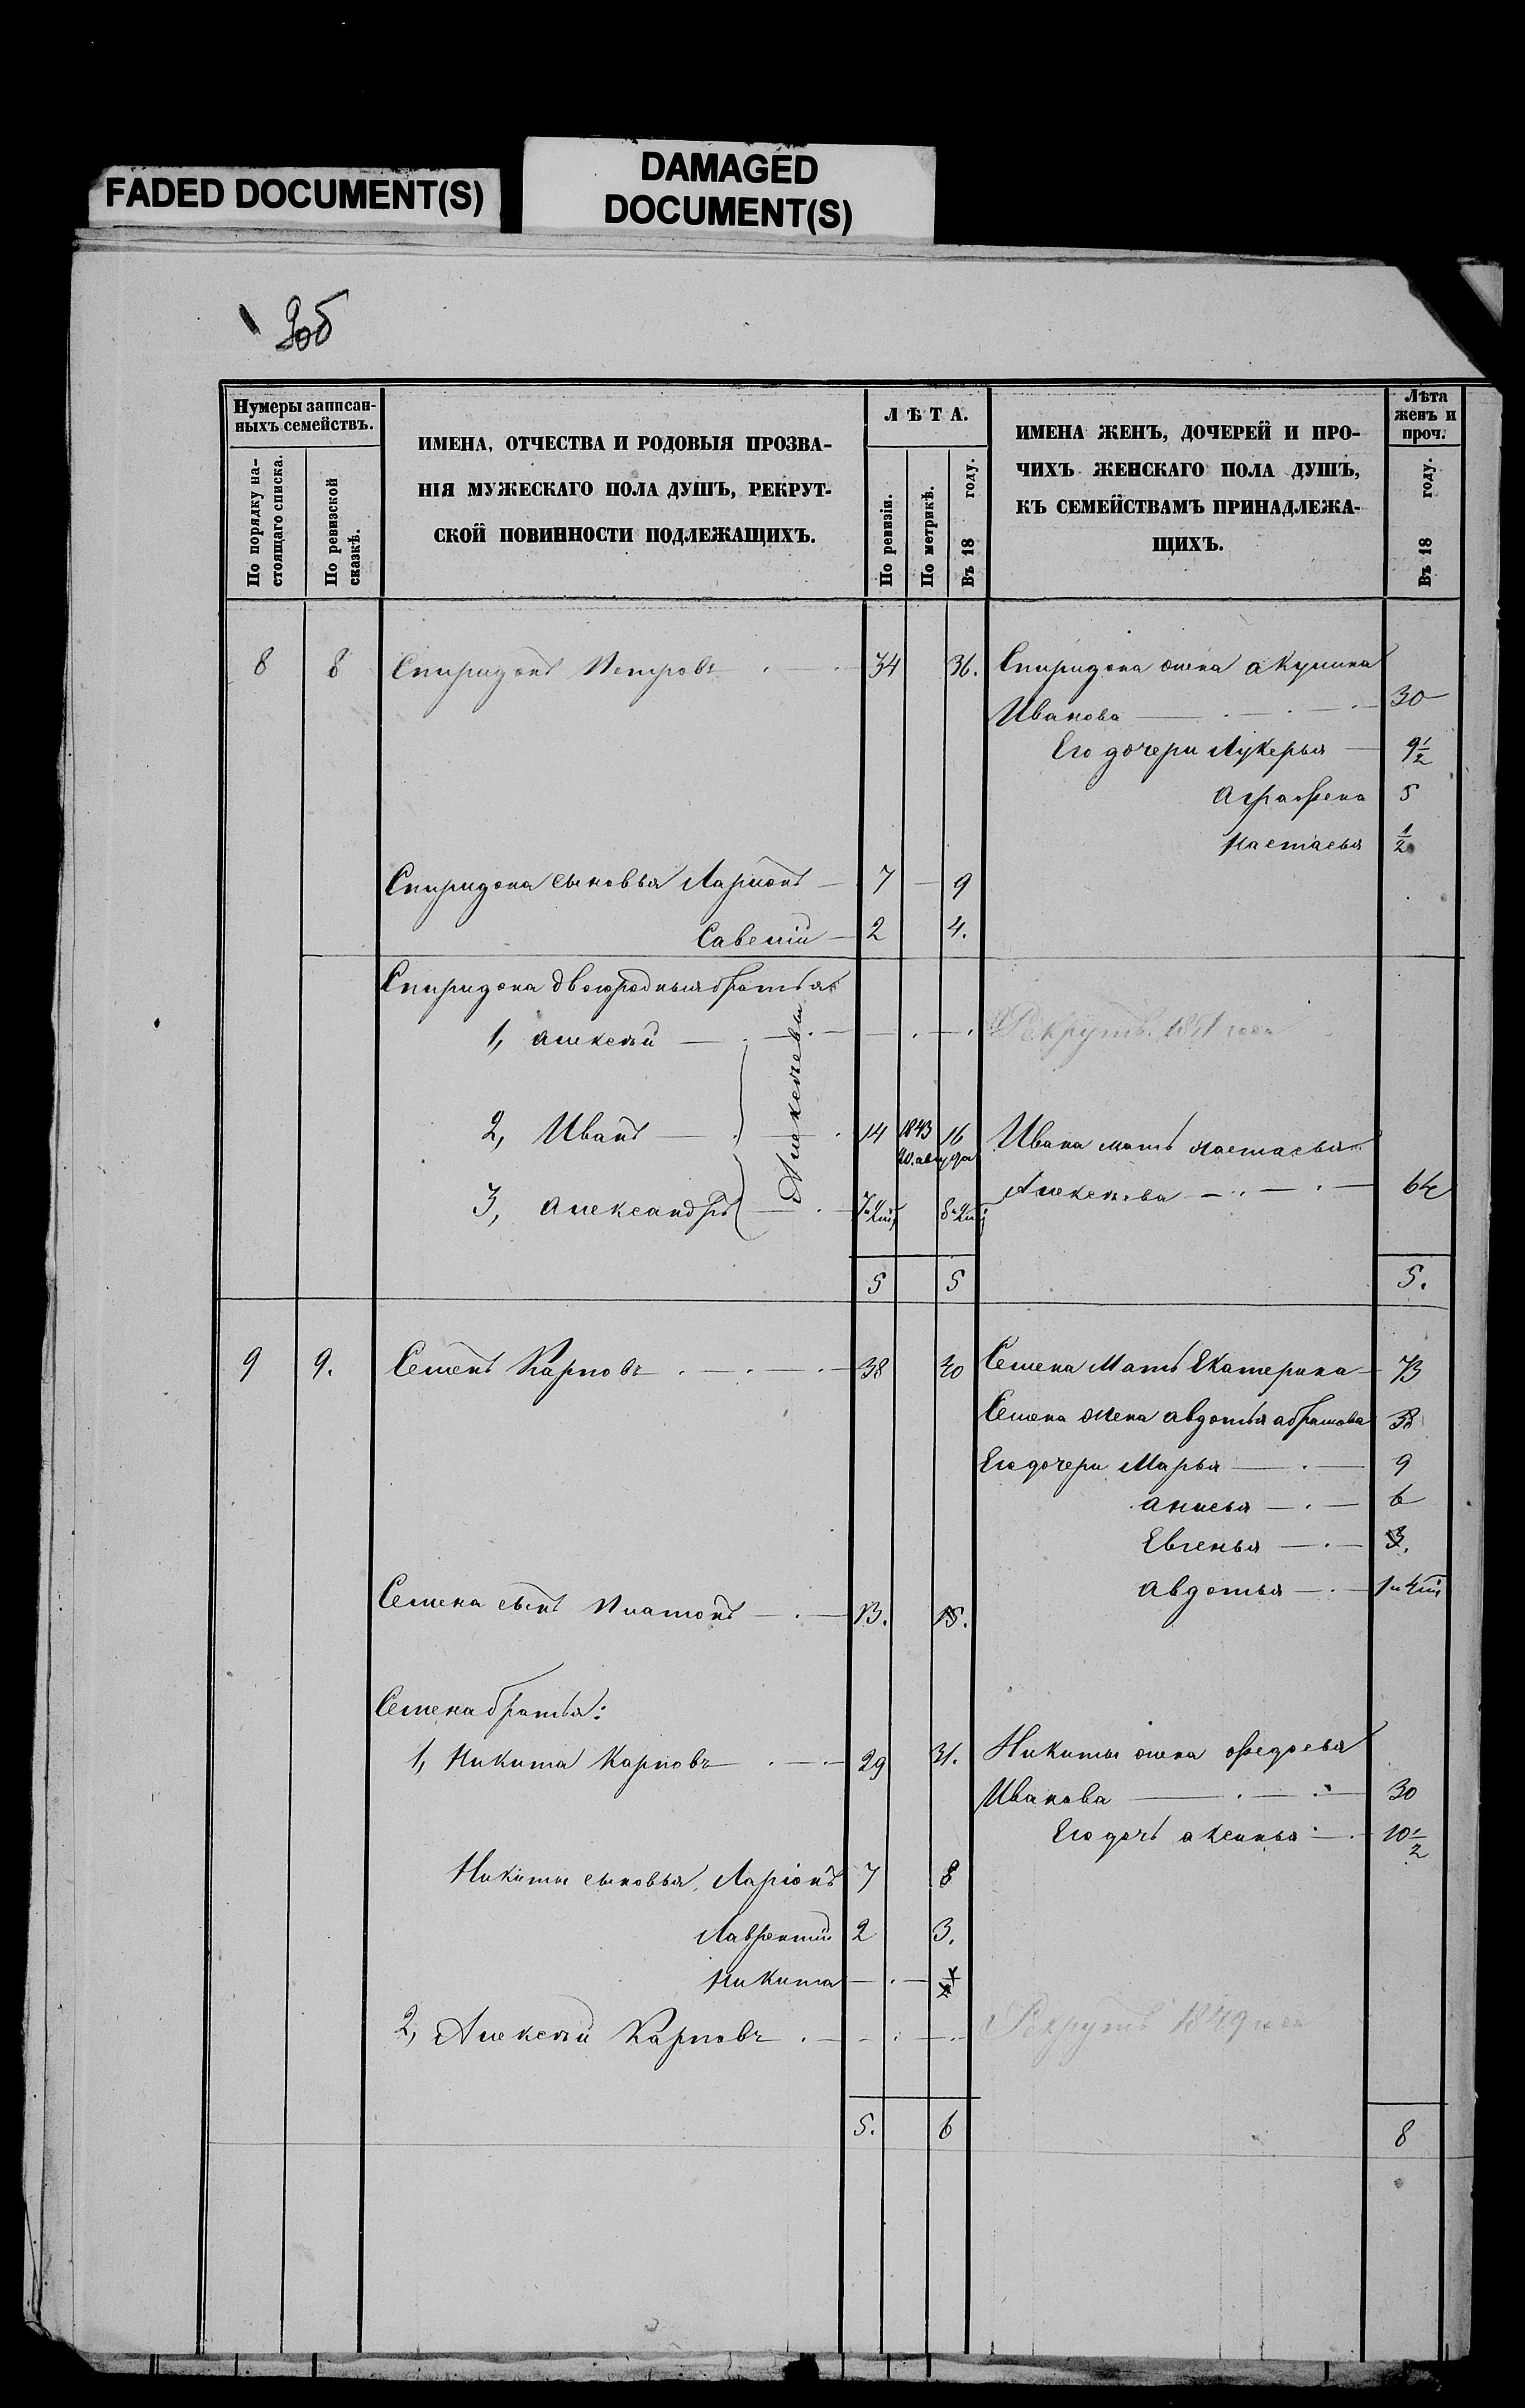 FADED DOCUMENT(S)
DAMAGED
DOCUMENT(S)
Нумеры записан-
ныхъ семействъ.
По порядку на-
стоящаго списка.
По ревизской
сказкѣ.
ИМЕНА, ОТЧЕСТВА И РОДОВЫЯ ПРОЗВА-
НІЯ МУЖЕСКАГО ПОЛА ДУШЪ, РЕКРУТ-
СКОЙ ПОВИННОСТИ ПОДЛЕЖАЩИХЪ.
ЛѢТА.
По ревизіи.
По метрикѣ.
Въ 18 году.
ИМЕНА ЖЕНЪ, ДОЧЕРЕЙ И ПРО-
ЧИХЪ ЖЕНСКАГО ПОЛА ДУШЪ,
КЪ СЕМЕЙСТВАМЪ ПРИНАДЛЕЖА-
ЩИХЪ.
Лѣта
женъ и
проч.
Въ 18 году.
8 8 Спиридонъ Петровъ 34 36. Спиридона жена акулина
Иванова 30
Его дочери Лукерья 9 1/2
Аграфена 5
Настасья 1/2
Спиридона сыновья Ларіонъ 7 9
Савелій 2 4.
Спиридона двоюродныя братья
1, алексѣй Рекрутъ 1851 года
Алексѣевы
2, Иванъ 14 1843 16 Ивана мать настасья
20. августа
3, александръ Алексѣева 64
5 5 5.
9 9. Семенъ Карповъ 38 Семена Мать Екатерина 73
Семена жена авдотья абрамова 38
Его дочери Марья 9
анисья 6
Евгенья 3.
Семена сынъ Платонъ 13. 15. авдотья
Семена братья:
1, Никита Карповъ 29 31. Никиты жена федосья
Иванова 30
Его дочь аксинья 10 1/2
Никиты сыновья, Ларіонъ 7 8
Лаврентій 2 3.
Никита
2, Алексѣй Карповъ Рекрутъ 1849 года
5. 6 8